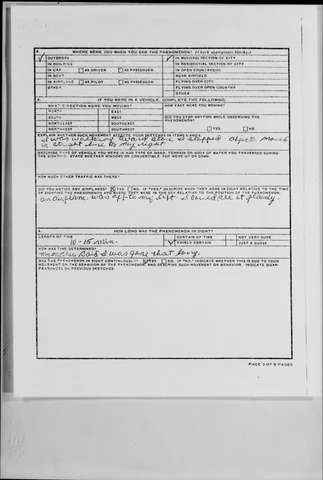 WHERE WERE YOU WHEN YOU SAW THE PHENOMENON? (Check appropriate blocks)
OUTDOORS
IN BUSINESS SECTION OF CITY
IN BUILDING
IN RESIDENTIAL SECTION OF CITY
IN CAR AS DRIVER AS PASSENGER
IN OPEN COUNTRYSIDE
IN BOAT
NEAR AIRFIELD
IN AIRPLANE AS PILOT AS PASSENGER
FLYING OVER CITY
OTHER
FLYING OVER OPEN COUNTRY
OTHER
IF YOU WERE IN A VEHICLE, COMPLETE THE FOLLOWING:
WHAT DIRECTION WERE YOU MOVING?
HOW FAST WERE YOU MOVING?
NORTH EAST
SOUTH WEST
DID YOU STOP ANYTIME WHILE OBSERVING THE PHENOMENON?
NORTHEAST SOUTHEAST
NORTHWEST SOUTHWEST
YES NO
EXPLAIN WHETHER SUCH MOVEMENT AFFECTS YOUR SKETCHES IN ITEMS
I was walking toward store I stopped object
a straight line to my right
DESCRIBE TYPE OF VEHICLE YOU WERE IN AND TYPE OF ROAD, TERRAIN OR BODY OF WATER YOU TRAVERSED DURING
THE SIGHTING. STATE WHETHER WINDOWS OR CONVERTIBLE TOP WERE UP OR DOWN.
HOW MUCH OTHER TRAFFIC WAS THERE?
DID YOU NOTICE ANY AIRPLANES? YES NO. IF "YES," DESCRIBE WHEN THEY WERE IN SIGHT RELATIVE TO THE TIME
OF SIGHTING THE PHENOMENON AND WHERE THEY WERE IN THE SKY RELATIVE TO THE POSITION OF THE PHENOMENON.
an airplane was off to my left I could see it plainly.
HOW LONG WAS THE PHENOMENON IN SIGHT?
LENGTH OF TIME
CERTAIN OF TIME
NOT VERY SURE
10-15 min.
FAIRLY CERTAIN
JUST A GUESS
HOW WAS TIME DETERMINED?
my mother said I was gone that long.
WAS THE PHENOMENON IN SIGHT CONTINUOUSLY? YES NO. IF "NO," INDICATE WHETHER THIS IS DUE TO YOUR
MOVEMENT OR THE BEHAVIOR OF THE PHENOMENON AND DESCRIBE SUCH MOVEMENT OR BEHAVIOR. INDICATE DISAP-
PEARANCES ON PREVIOUS SKETCHES.
PAGE 3 OF 9 PAGES